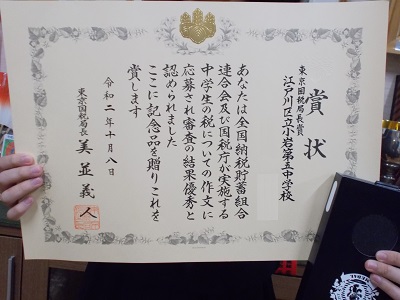 賞状
東京国税局長賞
江戸川区立小岩第五中学校
あなたは全国納税貯蓄組合
連合会及び国税庁が実施する
中学生の税についての作文に
応募され審査の結果優秀と
認められました
ここに記念品を贈りこれを
賞します
令和二年十月八日
東京国税局長 美並義人